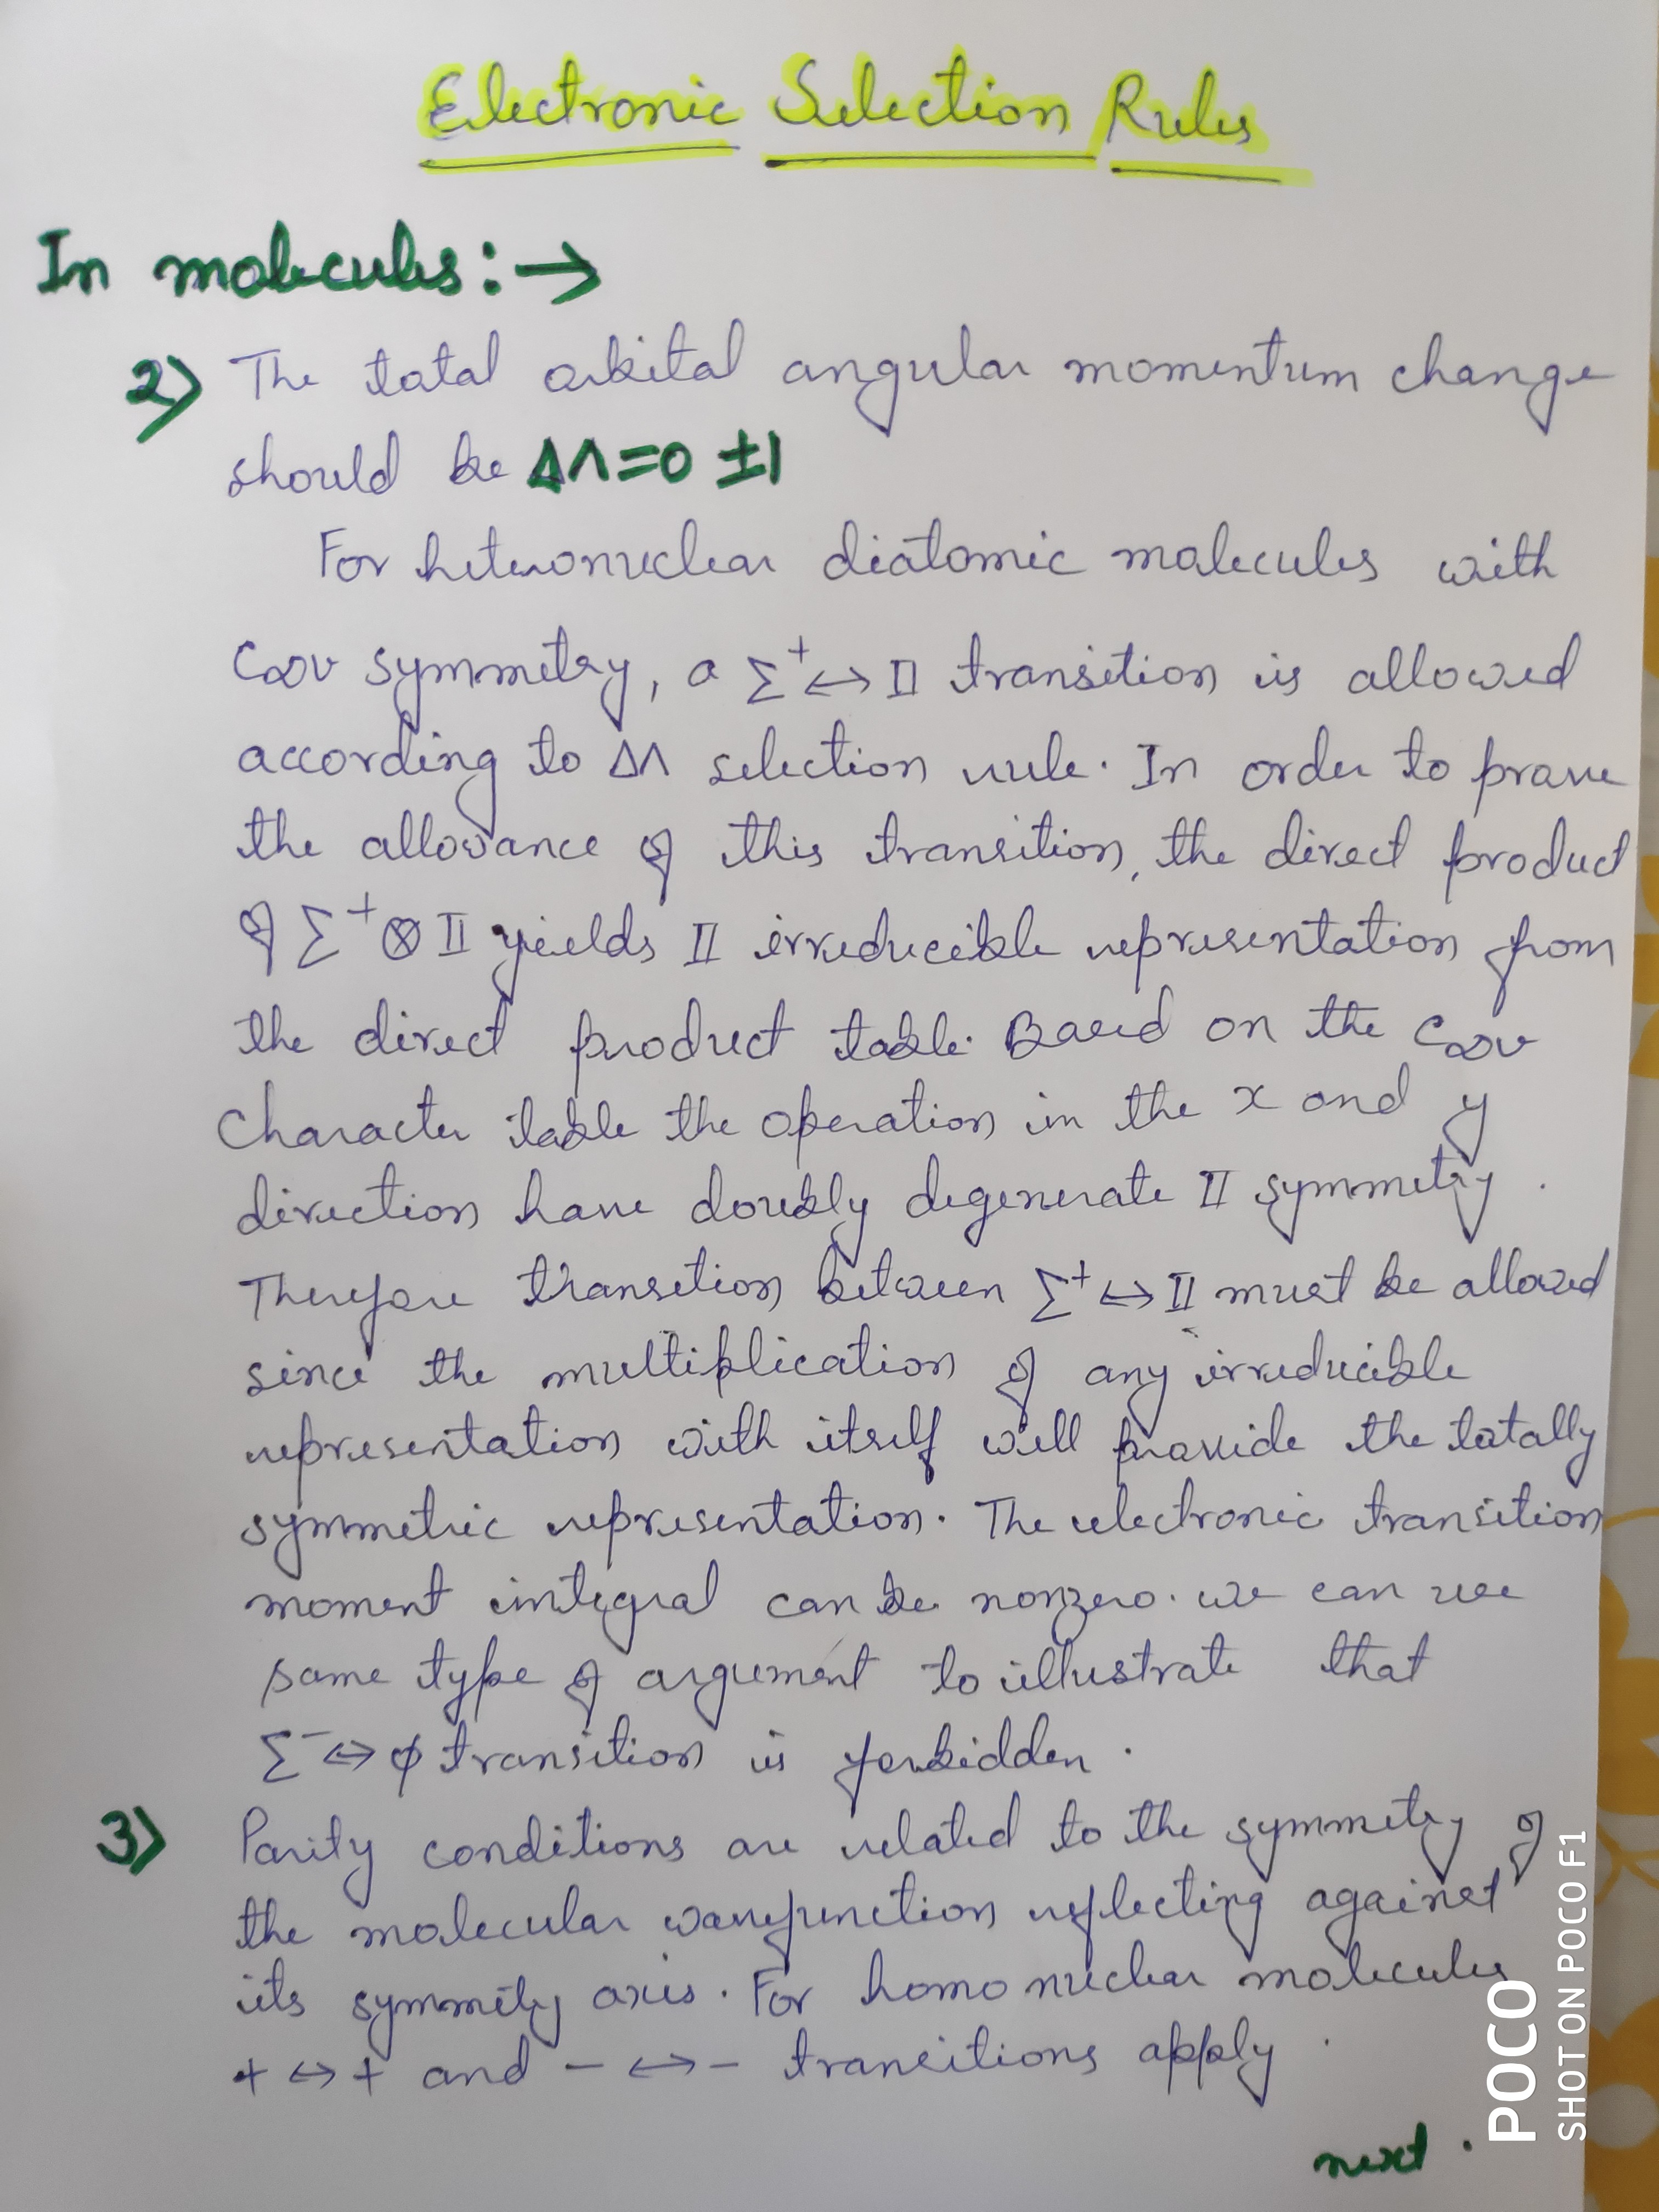 Electronic Selection Rules
In molecules:→
2) The total orbital angular momentum change
should be ΔΛ=0 ±1
For heteronuclear diatomic molecules with
C∞v symmetry, a Σ⁺↔Π transition is allowed
according to ΔΛ selection rule. In order to prove
the allowance of this transition, the direct product
of Σ⁺⊗Π yields Π irreducible representation from
the direct product table. Based on the C∞v
Character table the operation in the x and y
direction have doubly degenerate Π symmetry.
Therefore transition between Σ⁺↔Π must be allowed
since the multiplication of any irreducible
representation with itself will provide the totally
symmetric representation. The electronic transition
moment integral can be nonzero. we can use
same type of argument to illustrate that
Σ⁻↔φ transition is forbidden.
3) Parity conditions are related to the symmetry of
the molecular wavefunction reflecting against
its symmety axis. For homonuclear molecules
+↔+ and −↔− transitions apply.
next.
POCO
SHOT ON POCO F1